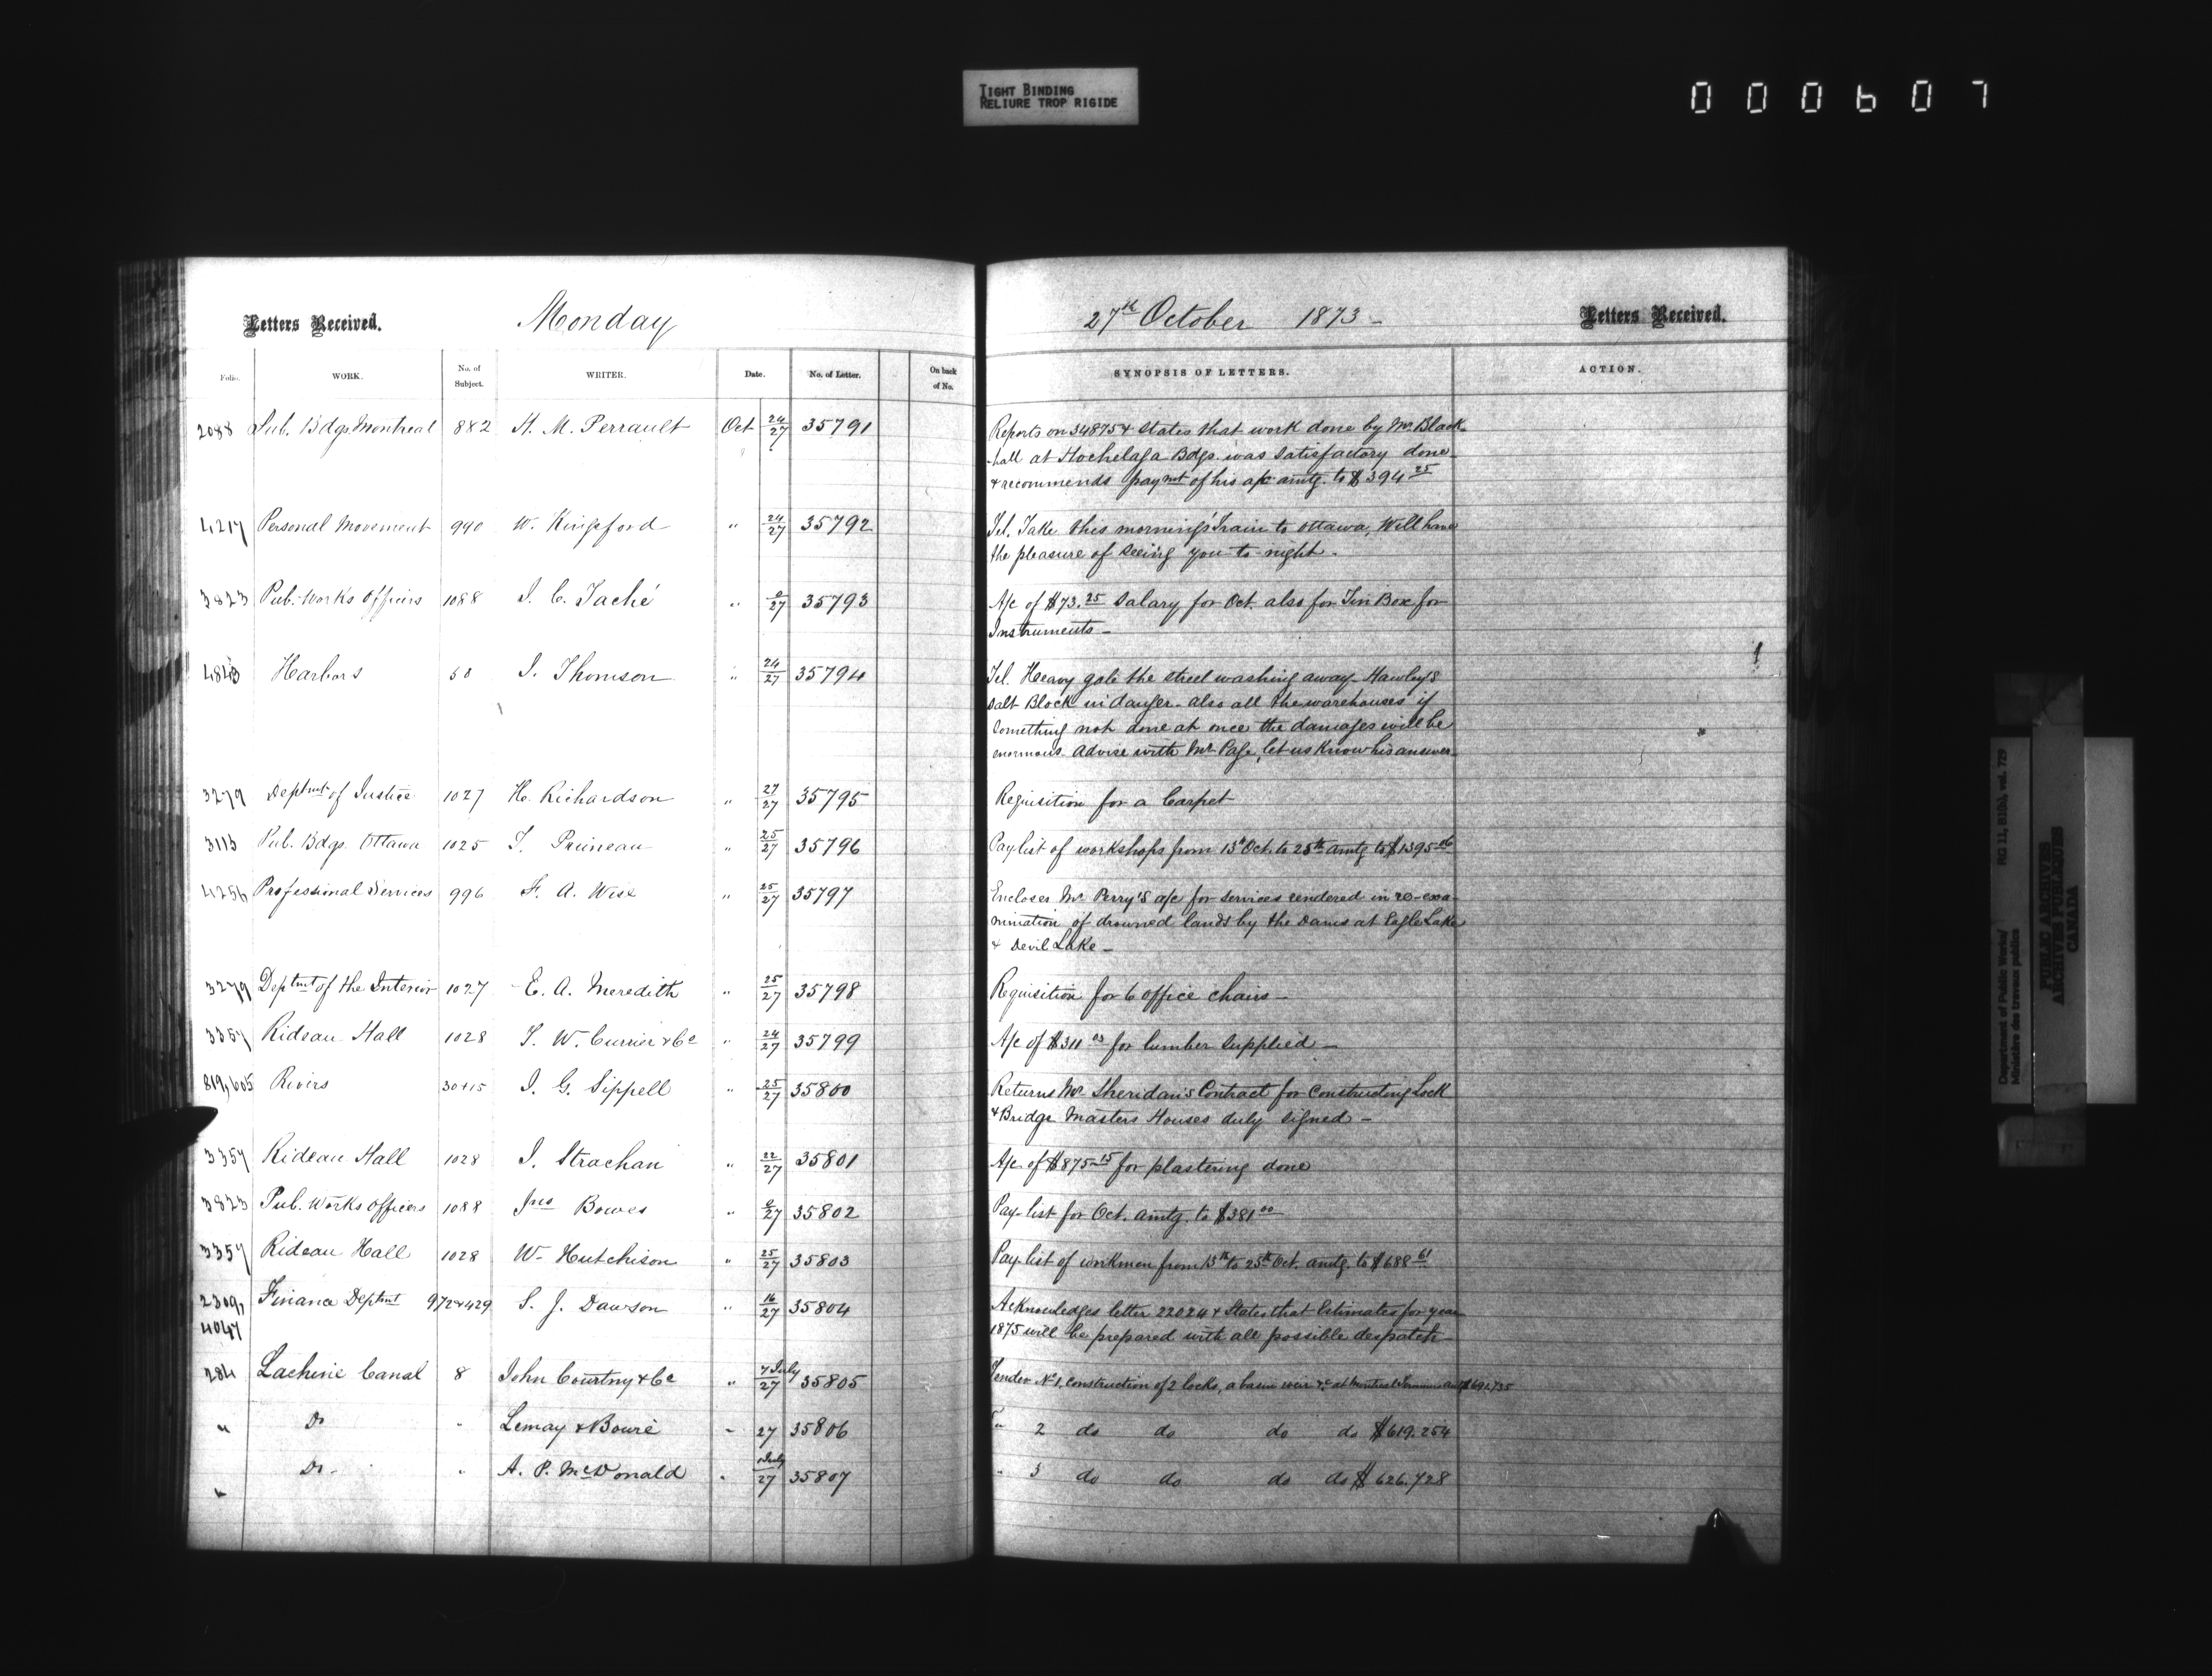 TIGHT BINDING
RELIURE TROP RIGIDE
000607
Letters Received. Monday 27th October 1873 - Letters Received.
Folio. WORK. No. of Subject. WRITER. Date. No. of Letter. On back of No. SYNOPSIS OF LETTERS. ACTION.
2088 Pub. Bdgs. Montreal 882 H. M. Perrault Oct 24/27 35791 Reports on 34875 & states that work done by Mr. Black-
hall at Hochelaga Bdgs. was satisfactory done
& recommends paymt of his a/c amtg. to $394 25
4217 Personal Movement 990 W. Kingsford " 24/27 35792 Tel. Take this morning's Train to Ottawa, Will have
the pleasure of seeing you to-night.
3823 Pub. Works Officers 1088 J. C. Taché " 0/27 35793 A/c of $73.25 Salary for Oct. also for Tin Box for
Instruments -
Harbors 50 J. Thomson " 24/27 35794 Tel. Heavy gale the street washing away Hawley's
Salt Block in danger - also all the warehouses if
something not done at once the damages will be
enormous. Advise with Mr. Page, let us know his answer
3279 Deptmt of Justice 1027 H. Richardson " 27/27 35795 Requisition for a Carpet
3113 Pub. Bdgs. Ottawa 1025 T. Pruneau " 25/27 35796 Pay list of workshops from 13th Oct. to 25th amtg to $1395 06
4256 Professional Services 996 F. A. Wise " 25/27 35797 Encloses Mr. Perry's a/c for services rendered in re-exa-
mination of drowned lands by the Dams at Eagle Lake
& Devil Lake -
3279 Deptmt of the Interior 1027 E. A. Meredith " 25/27 35798 Requisition for 6 office chairs -
3357 Rideau Hall 1028 T. W. Currier & Co " 24/27 35799 A/c of $311 03 for lumber supplied. -
819,605 Rivers 30+15 J. G. Sippell " 25/27 35800 Returns Mr. Sheridan's Contract for Constructing Lock
& Bridge Masters Houses duly signed -
3357 Rideau Hall 1028 J. Strachan " 22/27 35801 A/c of $875 15 for plastering done
3823 Pub. Works Officers 1088 Jno Bowes " 0/27 35802 Pay-list for Oct. amtg. to $381 00
3357 Rideau Hall 1028 W. Hutchison " 25/27 35803 Pay list of workmen from 13th to 25th Oct. amtg. to $688 61
2309, Finance Deptmt 972+429 S. J. Dawson " 16/27 35804 Acknowledges letter 22024 & States that Estimates for year
4047 1875 will be prepared with all possible despatch
284 Lachine Canal 8 John Courtny & Co " 7 July/27 35805 Tender No 1, construction of 2 locks, a basin weir &c at Montreal $692.735
" Do " Lemay & Bowie - 27 35806 " 2 do do do do $619.254
" Do - " A. P. McDonald " July/27 35807 " 3 do do do do $626.728
Department of Public Works/
Ministère des travaux publics
RG 11, B1(b), vol. 729
PUBLIC ARCHIVES
ARCHIVES PUBLIQUES
CANADA